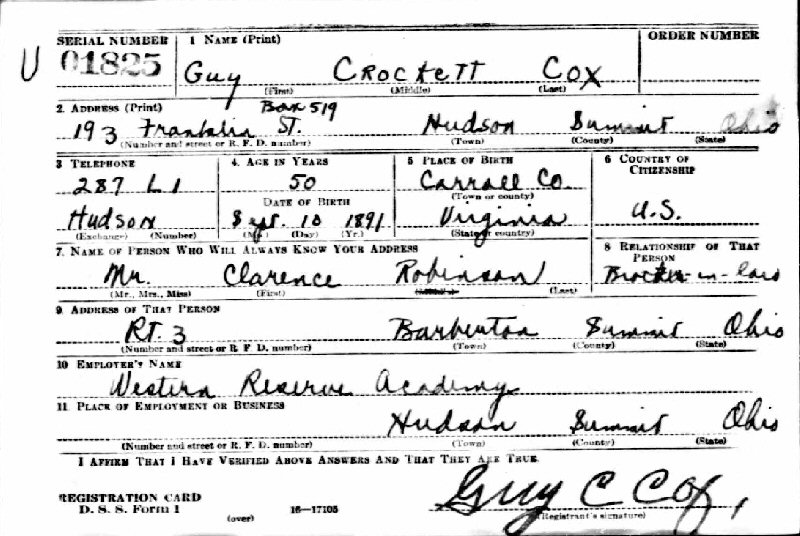 SERIAL NUMBER 1 NAME (Print) ORDER NUMBER
U 01825 Guy Crockett Cox
(First) (Middle) (Last)
2 ADDRESS (Print) Box 519
193 Franklin St. Hudson Summit Ohio
(Number and street or R. F. D. number) (Town) (County) (State)
3 TELEPHONE 4 AGE IN YEARS 5 PLACE OF BIRTH 6 COUNTRY OF CITIZENSHIP
287 L1 50 Carroll Co.
DATE OF BIRTH (Town or county)
Hudson Sept. 10 1891 Virginia U.S.
(Exchange) (Number) (Mo.) (Day) (Yr.) (State or country)
7 NAME OF PERSON WHO WILL ALWAYS KNOW YOUR ADDRESS 8 RELATIONSHIP OF THAT PERSON
Mr. Clarence Robinson Brother-in-law
(Mr., Mrs., Miss) (First) (Last)
9 ADDRESS OF THAT PERSON
RT. 3 Barberton Summit Ohio
(Number and street or R. F. D. number) (Town) (County) (State)
10 EMPLOYER'S NAME
Western Reserve Academy
11 PLACE OF EMPLOYMENT OR BUSINESS
Hudson Summit Ohio
(Number and street or R. F. D. number) (Town) (County) (State)
I AFFIRM THAT I HAVE VERIFIED ABOVE ANSWERS AND THAT THEY ARE TRUE.
REGISTRATION CARD Guy C Cox,
D. S. S. Form 1 (over) 16—17105 (Registrant's signature)